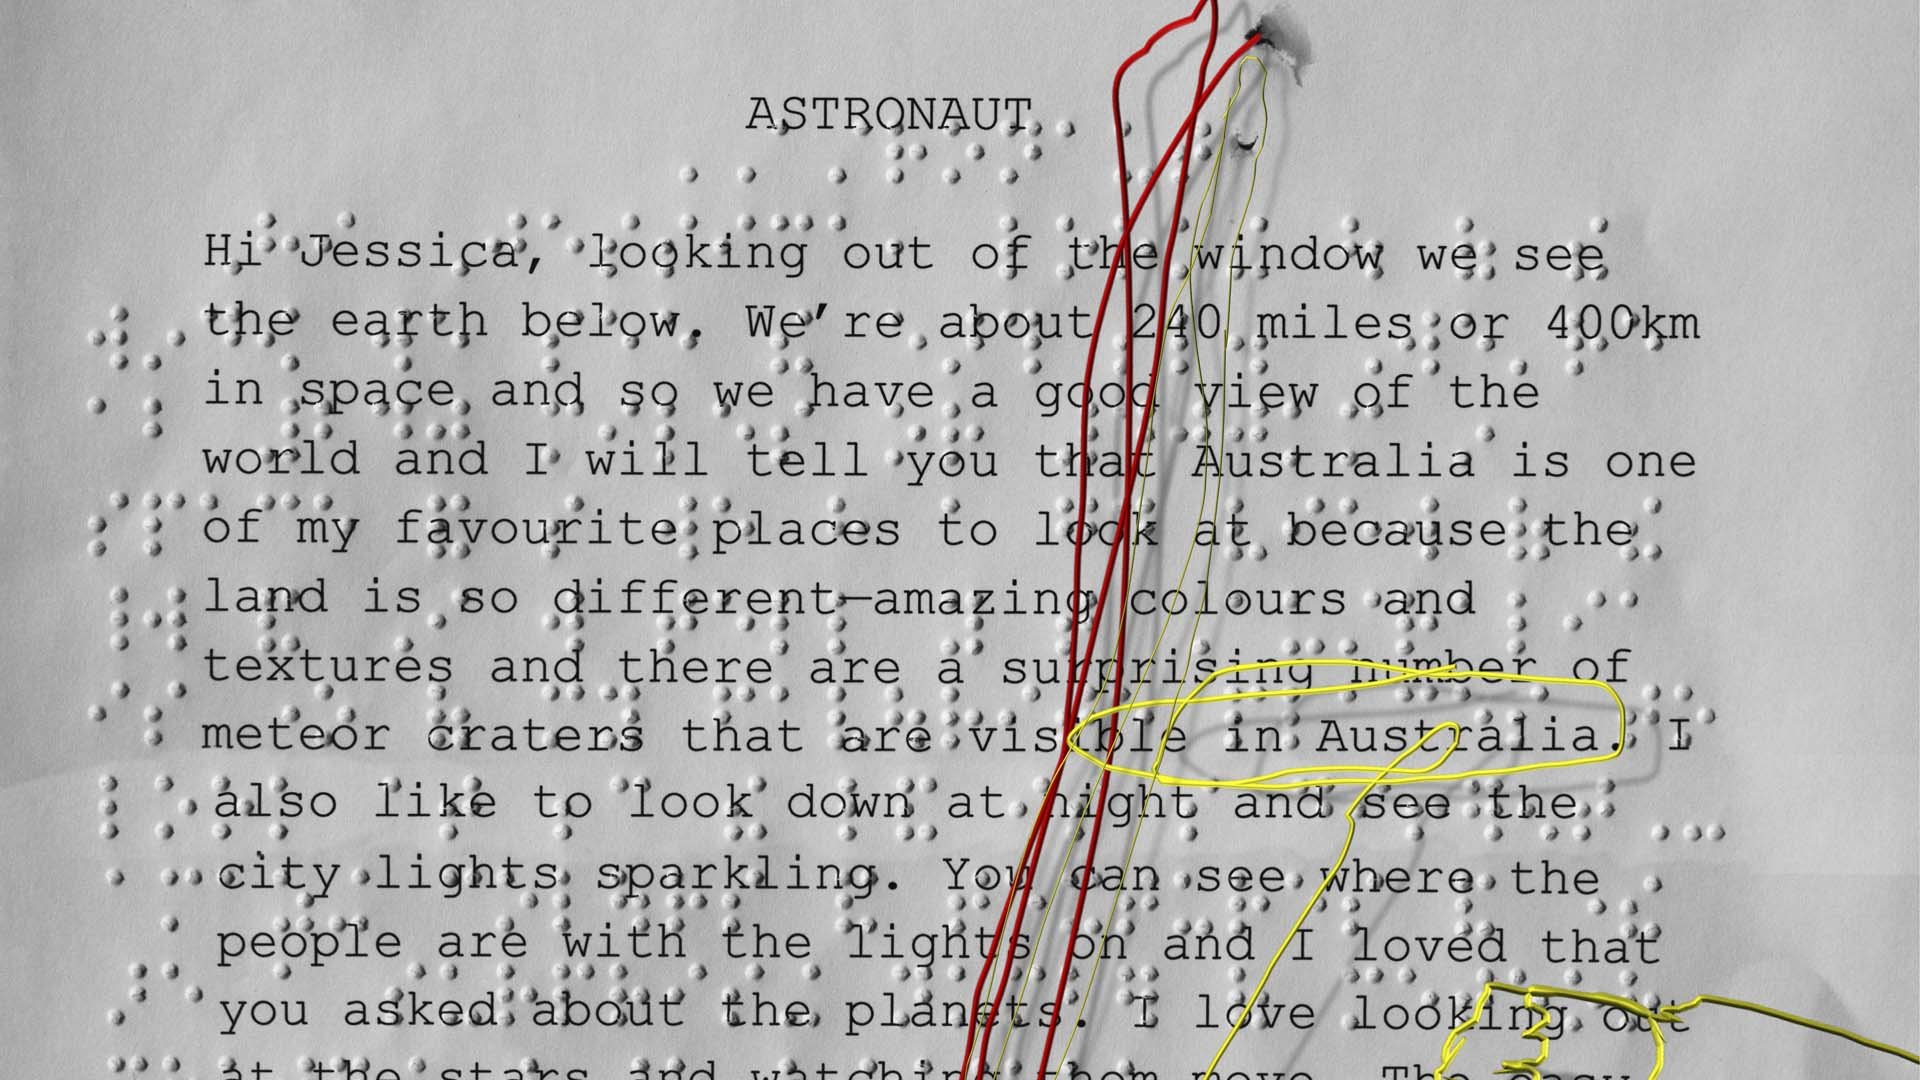 ASTRONAUT
Hi Jessica, looking out of the window we see
the earth below. We’re about 240 miles or 400km
in space and so we have a good view of the
world and I will tell you that Australia is one
of my favourite places to look at because the
land is so different—amazing colours and
textures and there are a surprising number of
meteor craters that are visible in Australia. I
also like to look down at night and see the
city lights sparkling. You can see where the
people are with the lights on and I loved that
you asked about the planets. I love looking out
at the stars and watching them move. The easy